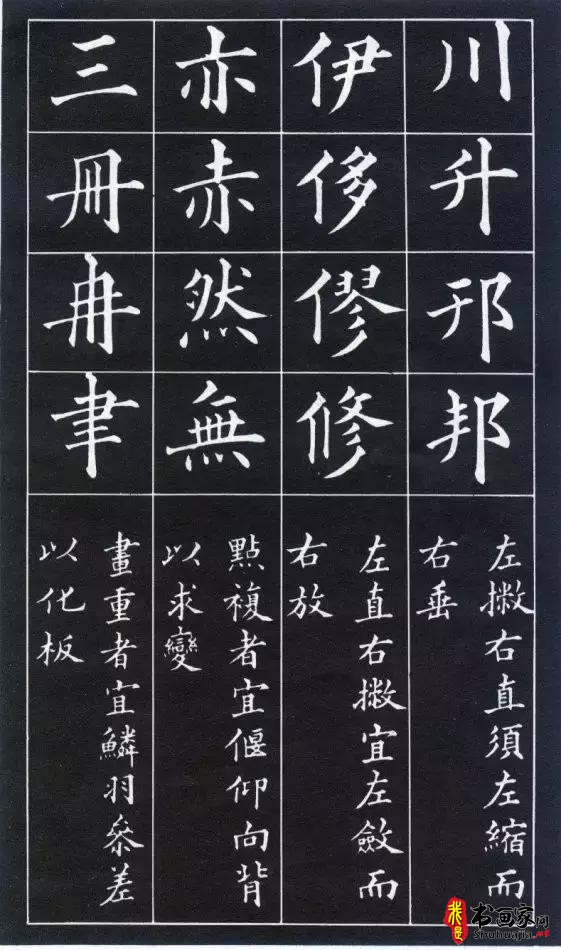 川升邗邦
左撇右直須左縮而
右垂
伊侈僇修
左直右撇宜左斂而
右放
亦赤然無
點複者宜偃仰向背
以求變
三冊冉聿
畫重者宜鱗羽參差
以化板
我是
书画家网
Shuhuajia.net